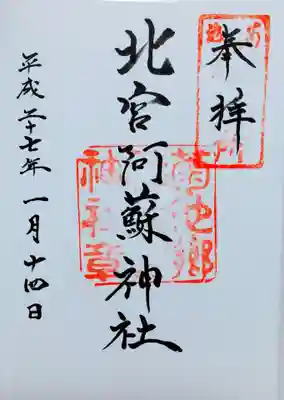 奉拝
北宮阿蘇神社
平成二十七年一月十四日
菊池郷
神社章